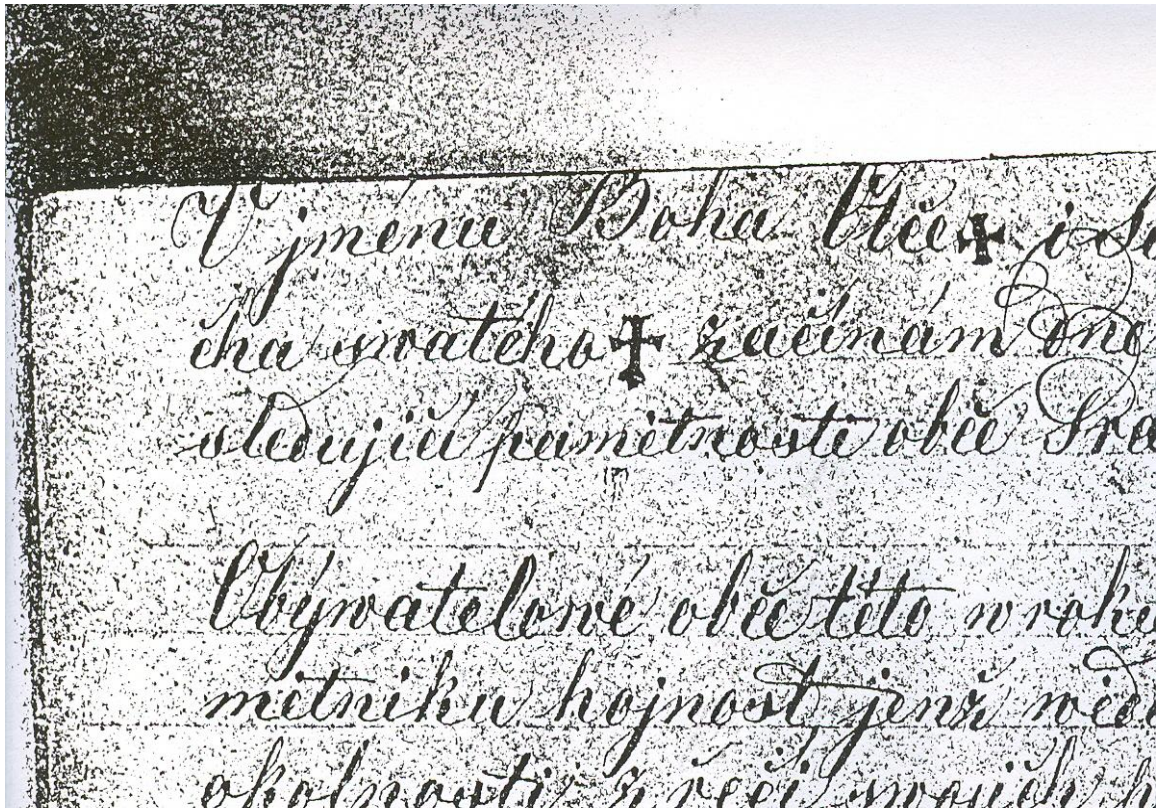 V jménu Boha Otce ✝ i
cha svatého ✝ začínám
sledující pamětnosti obce
Obývatelové obce této w roku
mětniku hojnost jenž
okolnosti z řečí swojich